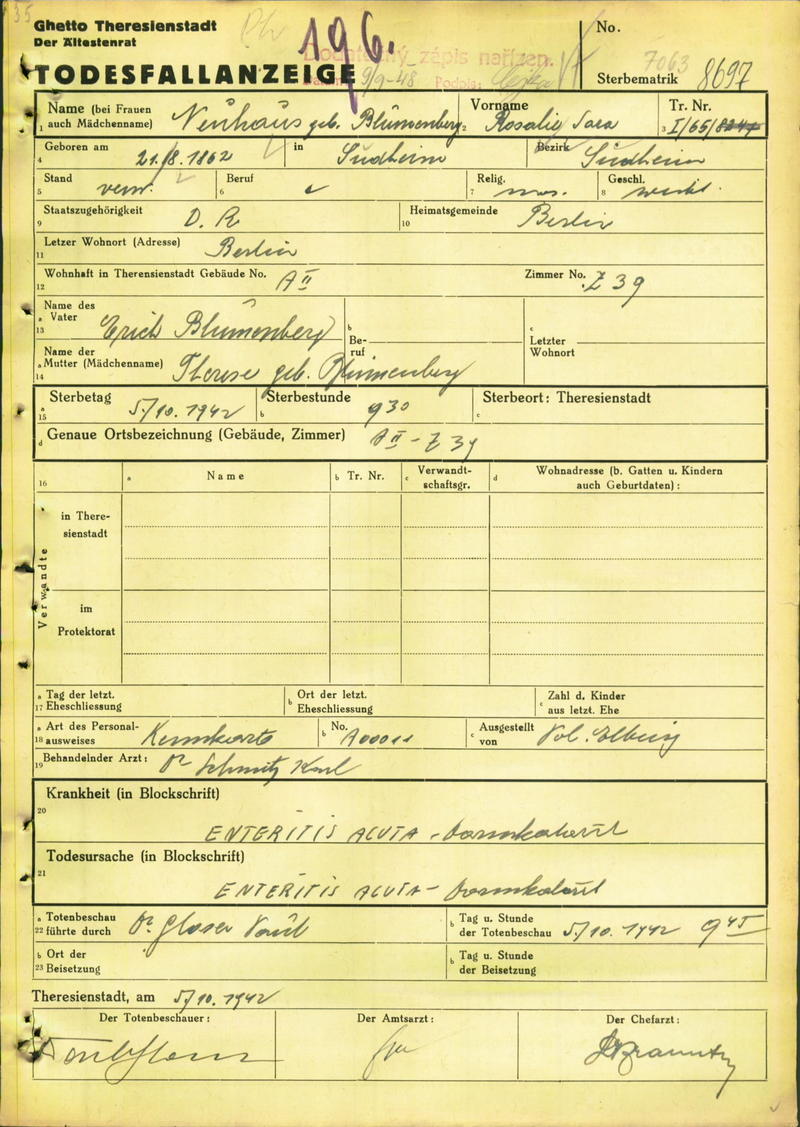 35
Ghetto Theresienstadt
Der Ältestenrat
196.
No.
Dodatečný zápis nařízen.
9/9-48 Podpis:
7063
TODESFALLANZEIGE
Sterbematrik 8697
Name (bei Frauen
1 auch Mädchenname) Neuhaus geb. Blumenberg
2 Vorname Rosalie Sara
3 Tr. Nr. I/65/8247
4 Geboren am 21./8. 1862 in Sudheim Bezirk Sudheim
5 Stand verw. 6 Beruf 7 Relig. mos. 8 Geschl. weibl.
9 Staatszugehörigkeit D. R. 10 Heimatsgemeinde Berlin
11 Letzer Wohnort (Adresse) Berlin
12 Wohnhaft in Theresienstadt Gebäude No. A II Zimmer No. Z 39
Name des
a Vater
13 Erich Blumenberg
b Be-
ruf
c Letzter
Wohnort
Name der
a Mutter (Mädchenname)
14 Therese geb. Blumenberg
a 15 Sterbetag 5./10. 1942 b Sterbestunde 9 30 c Sterbeort: Theresienstadt
d Genaue Ortsbezeichnung (Gebäude, Zimmer) A II - Z 39
16 a Name b Tr. Nr. c Verwandt-
schaftsgr. d Wohnadresse (b. Gatten u. Kindern
auch Geburtdaten):
Verwandte
in There-
sienstadt
im
Protektorat
a Tag der letzt.
17 Eheschliessung
b Ort der letzt.
Eheschliessung
c Zahl d. Kinder
aus letzt. Ehe
a Art des Personal-
18 ausweises Kennkarte
b No. A00011
c Ausgestellt
von Pol. Elbing
19 Behandelnder Arzt: Dr Schmitz Karl
Krankheit (in Blockschrift)
20
ENTERITIS ACUTA - Darmkatarrh
Todesursache (in Blockschrift)
21
ENTERITIS ACUTA - Darmkatarrh
a Totenbeschau
22 führte durch Dr. Glaser Paul
b Tag u. Stunde
der Totenbeschau 5./10. 1942 9 45
b Ort der
23 Beisetzung
b Tag u. Stunde
der Beisetzung
Theresienstadt, am 5./10. 1942
Der Totenbeschauer:
Der Amtsarzt:
Der Chefarzt: